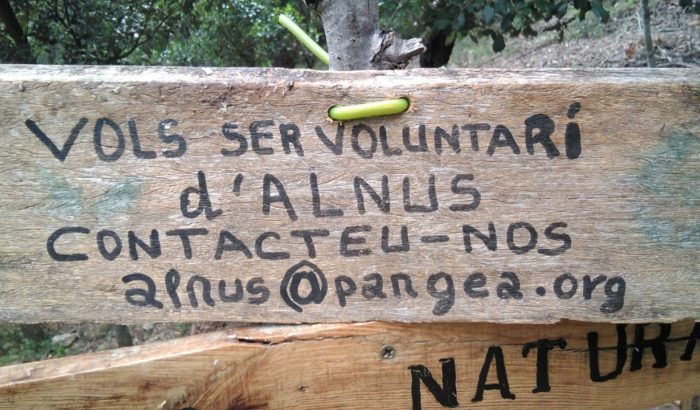 VOLS SER VOLUNTARí
d'ALNUS
CONTACTEU-NOS
alnus@pangea.org
NATURA